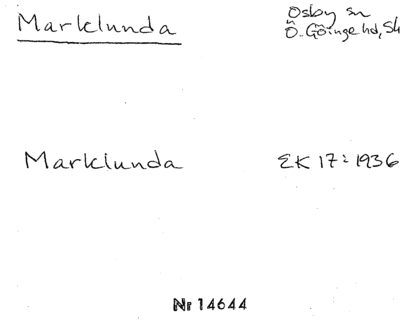 Marklunda
Osby sn
Ö. Göinge hd, Sk
Marklunda
EK 17:1936
Nr 14644